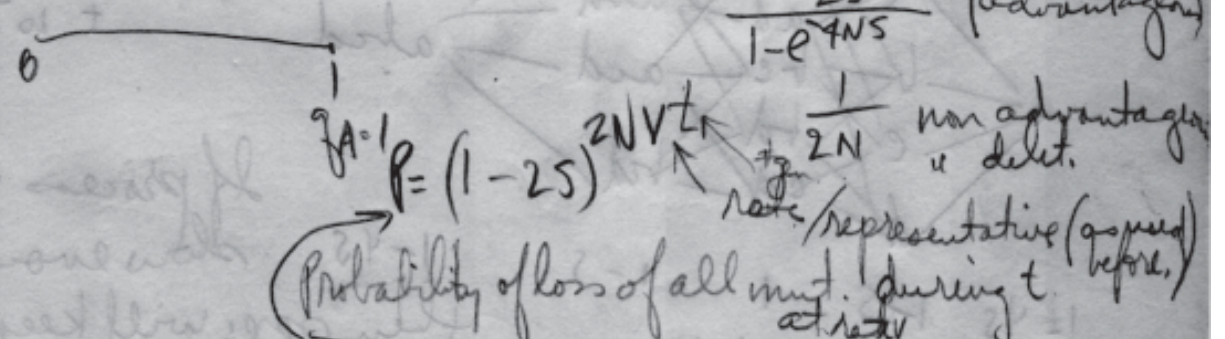 2S
1-e^-4NS (advantageous)
0 1
1/2N non advantageous
" delet.
qA=1
P= (1-2S)^2NVt
rate/representative (as used before.)
Probability of loss of all mut. during t
at rate V